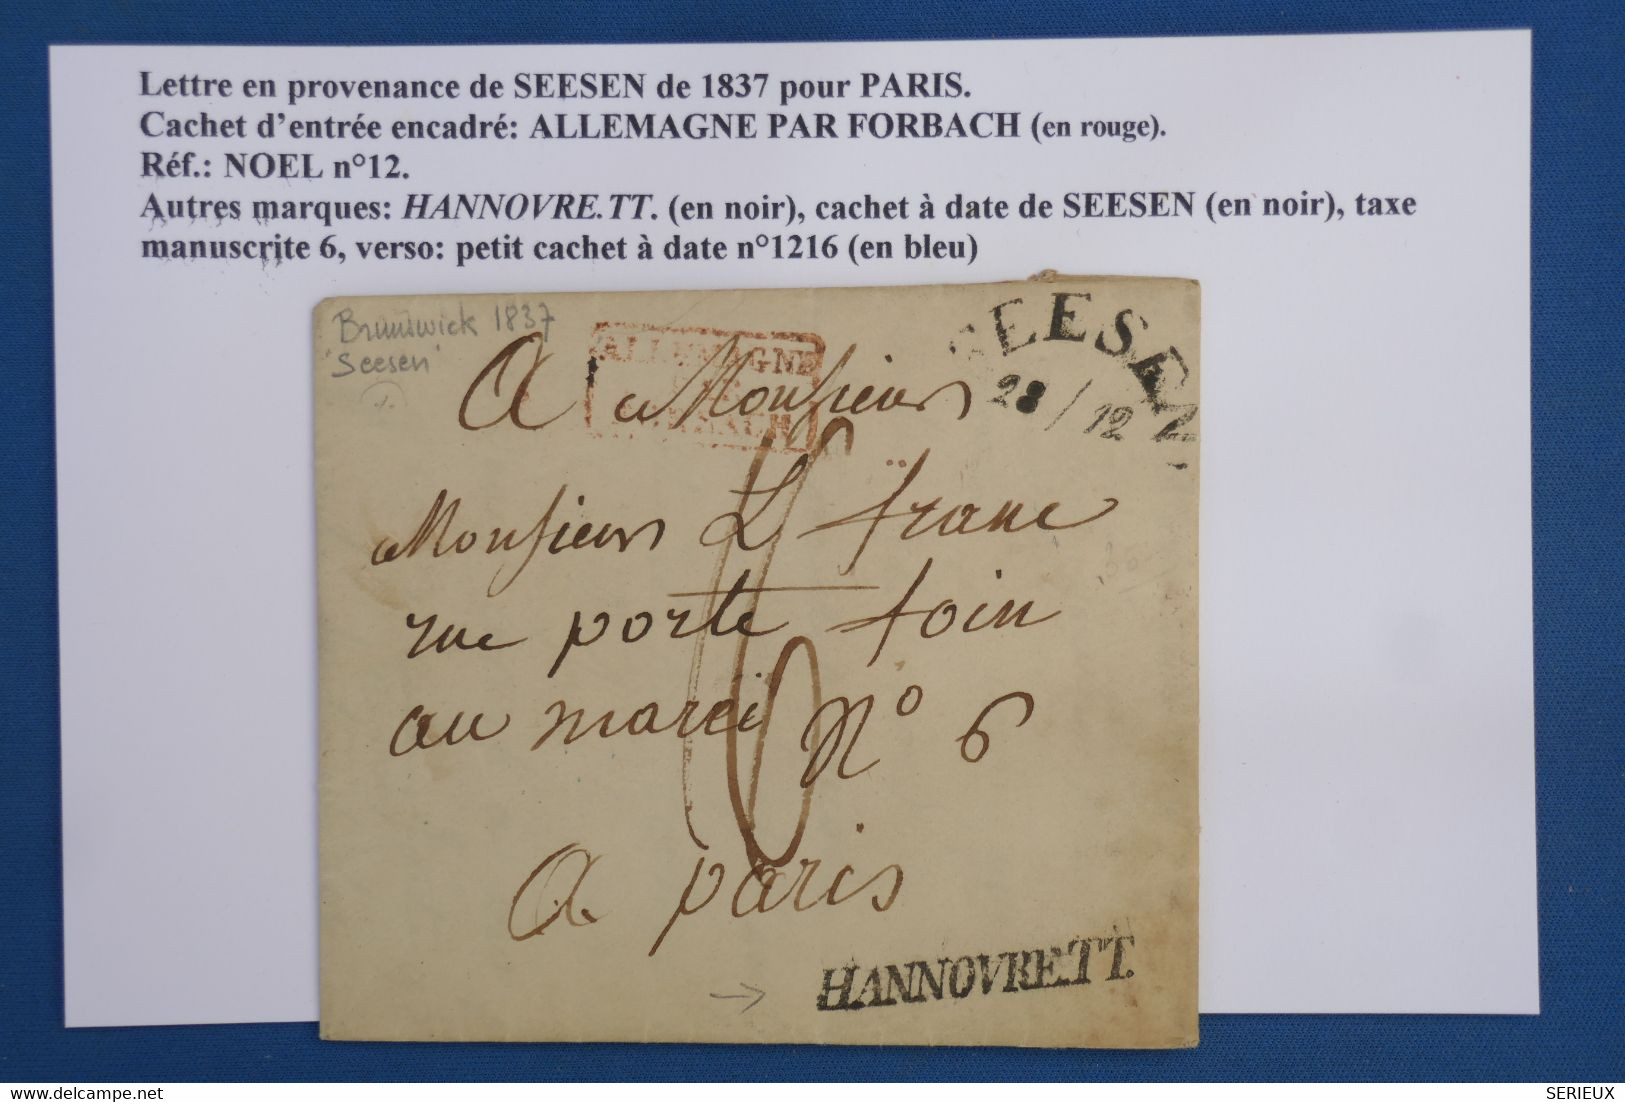 Lettre en provenance de SEESEN de 1837 pour PARIS.
Cachet d'entrée encadré: ALLEMAGNE PAR FORBACH (en rouge).
Réf.: NOEL n°12.
Autres marques: HANNOVRE.TT. (en noir), cachet à date de SEESEN (en noir), taxe
manuscrite 6, verso: petit cachet à date n°1216 (en bleu)
Brunswick 1837
"Seesen"
ALLEMAGNE
PAR
FORBACH
SEESEN
28/12
A Monsieur
Monsieur L franc
rue porte foin
au marei N° 6
A paris
HANNOVRE.TT.
delcampe.net
SERIEUX